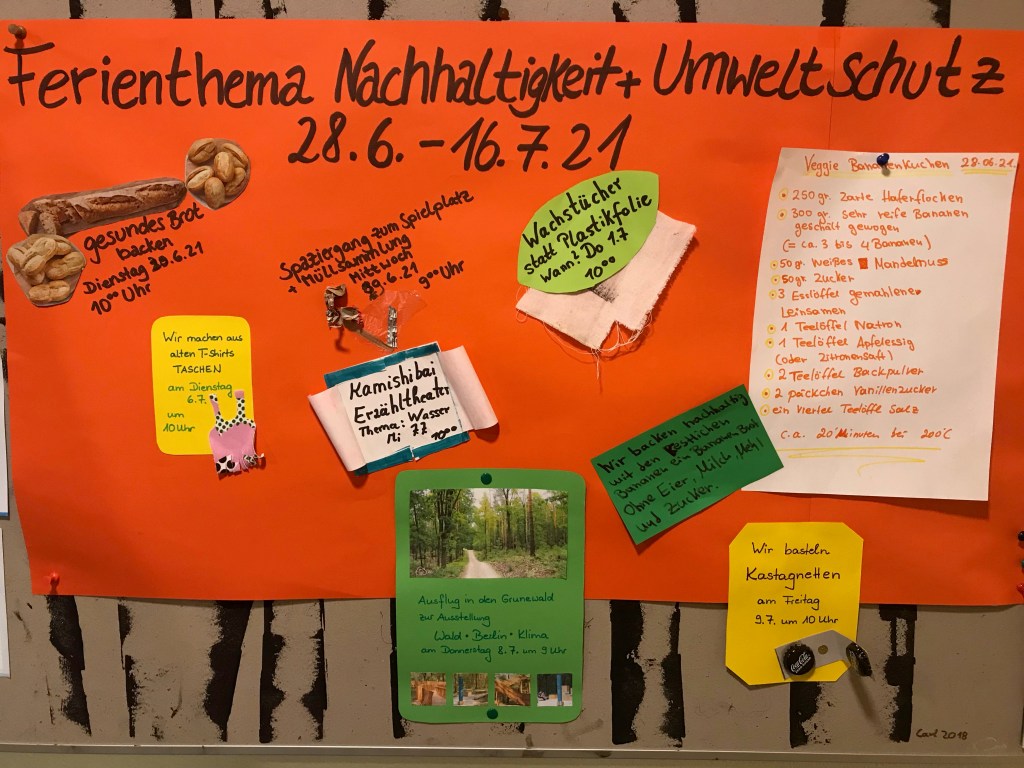 Ferienthema Nachhaltigkeit + Umweltschutz
28.6. - 16.7.21
gesundes Brot
backen
Dienstag 29.6.21
10⁰⁰ Uhr
Spaziergang zum Spielplatz
+ Müllsammlung
Mittwoch
29.6.21 9⁰⁰ Uhr
Wachstücher
statt Plastikfolie
wann? Do 1.7
10⁰⁰
Veggie Bananenkuchen 28.06.21
250 gr. zarte Haferflocken
300 gr. sehr reife Bananen
geschält gewogen
(= ca. 3 bis 4 Bananen)
50 gr. weißes Mandelmuss
50 gr. Zucker
3 Esslöffel gemahlener
Leinsamen
1 Teelöffel Natron
1 Teelöffel Apfelessig
(oder Zitronensaft)
2 Teelöffel Backpulver
2 päckchen Vanillenzucker
ein viertel Teelöffe Salz
c.a. 20 Minuten bei 200°C
Wir machen aus
alten T-Shirts
TASCHEN
am Dienstag
6.7.
um
10 Uhr
Kamishibai
Erzähltheater
Thema: Wasser
Mi 7.7 10⁰⁰
Wir backen nachhaltig
mit den restlichen
Bananen ein Bananen Brot
Ohne Eier, Milch, Mehl
und Zucker.
Ausflug in den Grunewald
zur Ausstellung
Wald • Berlin • Klima
am Donnerstag 8.7. um 9 Uhr
Wir basteln
Kastagnetten
am Freitag
9.7. um 10 Uhr
Coca-Cola
Carl 2018